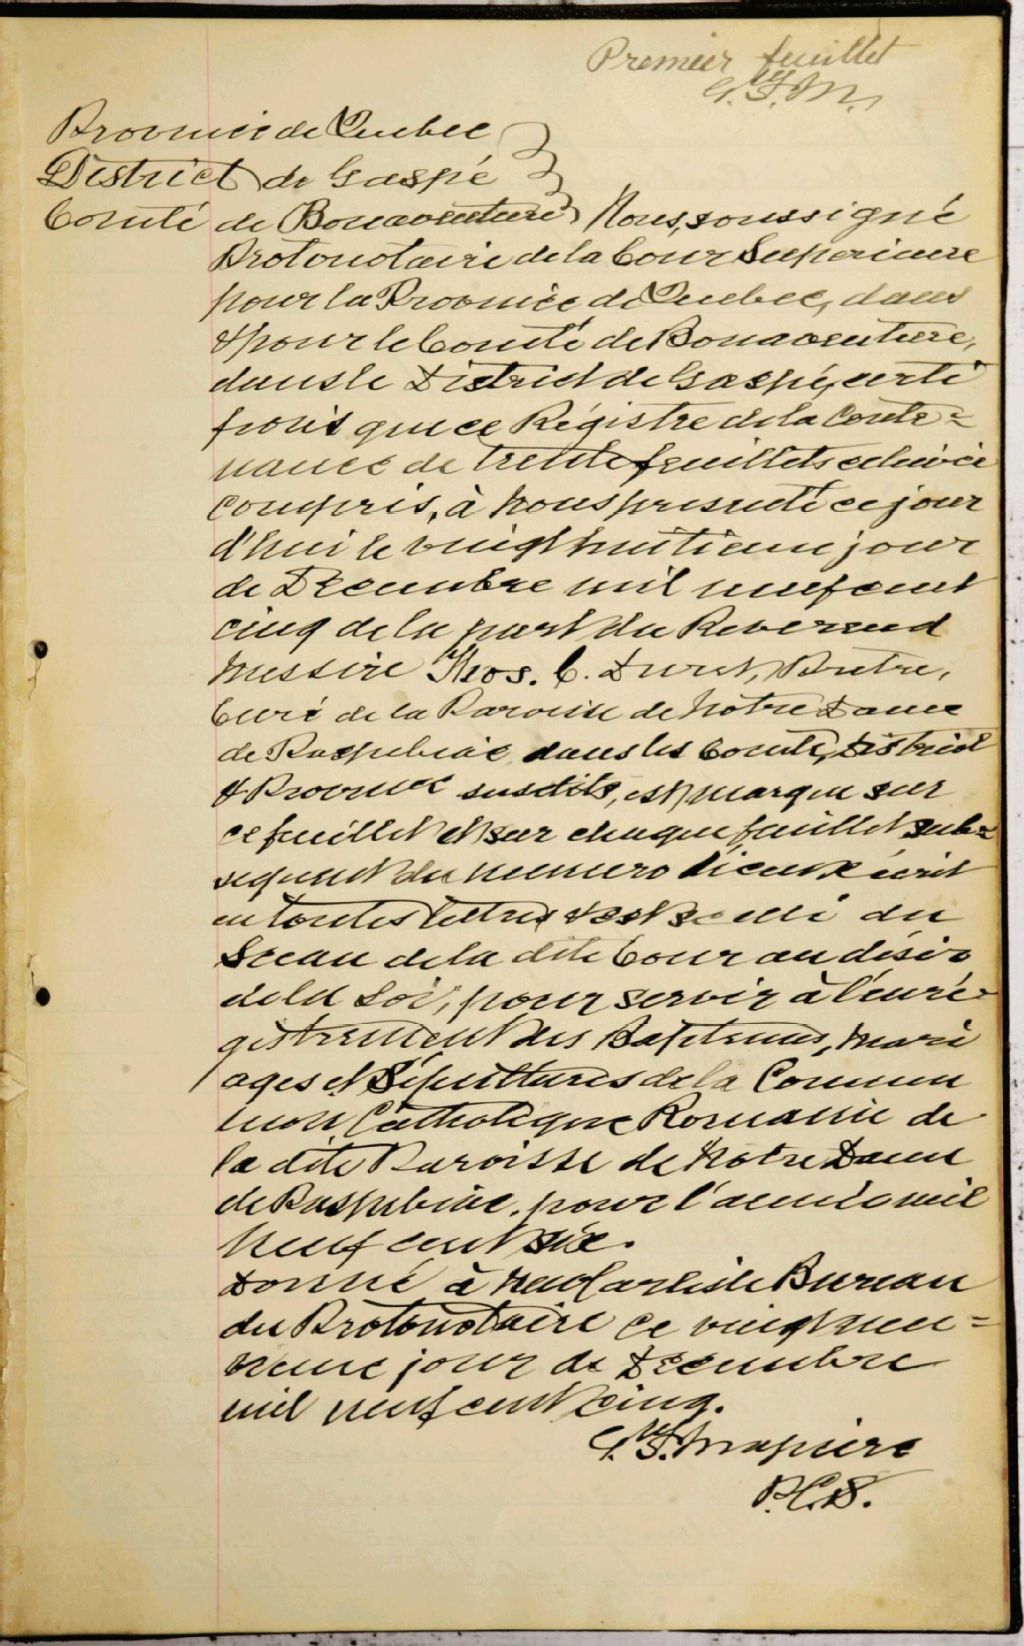 Premier feuillet
G.F.M.
Province de Quebec
District de Gaspé
Comté de Bonaventure Nous, soussigné
Protonotaire de la Cour Superieure
pour la Province de Quebec, dans
& pour le Comté de Bonaventure,
dans le District de Gaspé, certi
fions que ce Régistre de la Conte=
nance de trente feuillets celui ci
compris, à nous presenté ce jour
d'hui le vingt huitieme jour
de Décembre mil neuf cent
cinq de la part du Reverend
Messire Thos. C. Duret, Prêtre,
Curé de la Paroisse de Notre Dame
de Paspebiac dans les Comté, District
& Province susdits, est marqué sur
ce feuillet et sur chaque feuillet sub=
sequent du numero d'iceux écrit
en toutes lettres & est scellé du
Sceau de la dite Cour au désir
de la Loi, pour servir à l'enré=
gistrement des Baptemes, Mari
ages et Sépultures de la Commu
nion Catholique Romaine de
la dite Paroisse de Notre Dame
de Paspebiac, pour l'année mil
neuf cent six.
Donné à New Carlisle Bureau
du Protonotaire ce vingt neu=
vieme jour de Décembre
mil neuf cent cinq.
P.C.S.